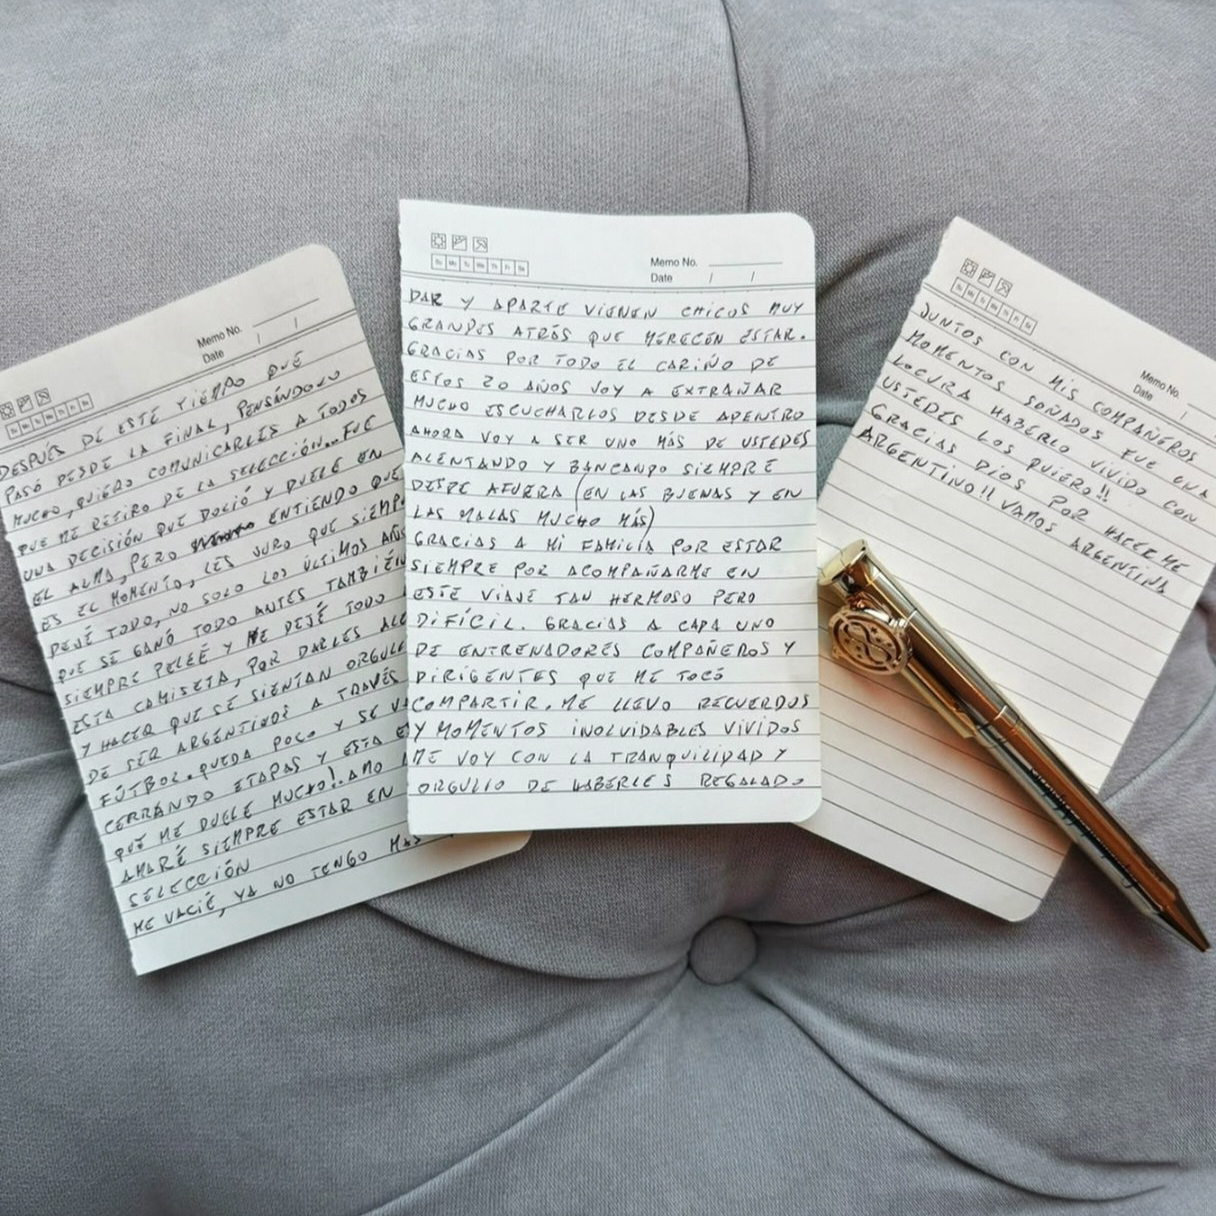 Memo No.
Date / /
DESPUÉS DE ESTE TIEMPO QUE
PASÓ DESDE LA FINAL, PENSÁNDOLO
MUCHO, QUIERO COMUNICARLES A TODOS
QUE ME RETIRO DE LA SELECCIÓN... FUE
UNA DECISIÓN QUE DOLIÓ Y DUELE EN
EL ALMA, PERO ENTIENDO QUE
ES EL MOMENTO, LES JURO QUE SIEMP
DEJÉ TODO, NO SOLO LOS ÚLTIMOS AÑOS
QUE SE GANÓ TODO ANTES TAMBIÉN
SIEMPRE PELEÉ Y ME DEJÉ TODO
ESTA CAMISETA, POR DARLES ALE
Y HACER QUE SE SIENTAN ORGULL
DE SER ARGENTINOS A TRAVÉS
FÚTBOL. QUEDA POCO Y SE VA
CERRANDO ETAPAS Y ESTA E
QUE ME DUELE MUCHO!. AMO
AMARÉ SIEMPRE ESTAR EN
SELECCIÓN
ME VACIÉ, YA NO TENGO MÁS
Memo No.
Date / /
Su Mo Tu We Th Fr Sa
DAR Y APARTE VIENEN CHICOS MUY
GRANDES ATRÁS QUE MERECEN ESTAR.
GRACIAS POR TODO EL CARIÑO DE
ESTOS 20 AÑOS VOY A EXTRAÑAR
MUCHO ESCUCHARLOS DESDE ADENTRO
AHORA VOY A SER UNO MÁS DE USTEDES
ALENTANDO Y BANCANDO SIEMPRE
DESDE AFUERA (EN LAS BUENAS Y EN
LAS MALAS MUCHO MÁS)
GRACIAS A MI FAMILIA POR ESTAR
SIEMPRE POR ACOMPAÑARME EN
ESTE VIAJE TAN HERMOSO PERO
DIFÍCIL. GRACIAS A CADA UNO
DE ENTRENADORES COMPAÑEROS Y
DIRIGENTES QUE ME TOCÓ
COMPARTIR. ME LLEVO RECUERDOS
Y MOMENTOS INOLVIDABLES VIVIDOS
ME VOY CON LA TRANQUILIDAD Y
ORGULLO DE HABERLES REGALADO
Memo No.
Date /
JUNTOS CON MIS COMPAÑEROS
MOMENTOS SOÑADOS FUE UNA
LOCURA HABERLO VIVIDO CON
USTEDES LOS QUIERO!!
GRACIAS DIOS POR HACERME
ARGENTINO!! VAMOS ARGENTINA